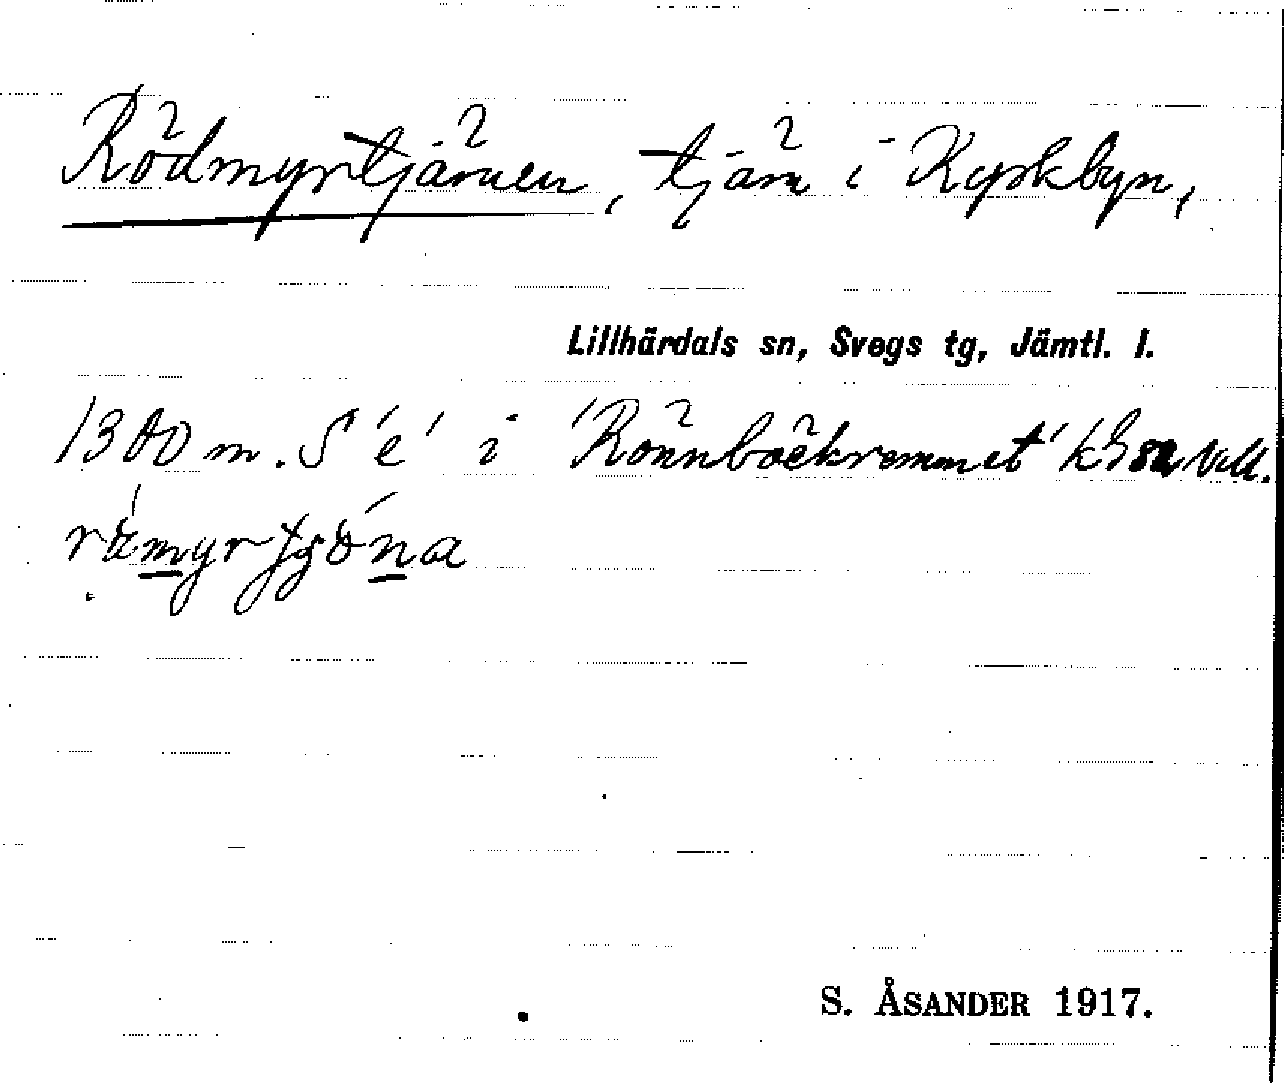 Rödmyrtjärnen, tjärn i Kyrkbyn,
Lillhärdals sn, Svegs tg, Jämtl. l.
1300 m. S 'e' i 'Rönnbäckremmet'
S. ÅSANDER 1917.